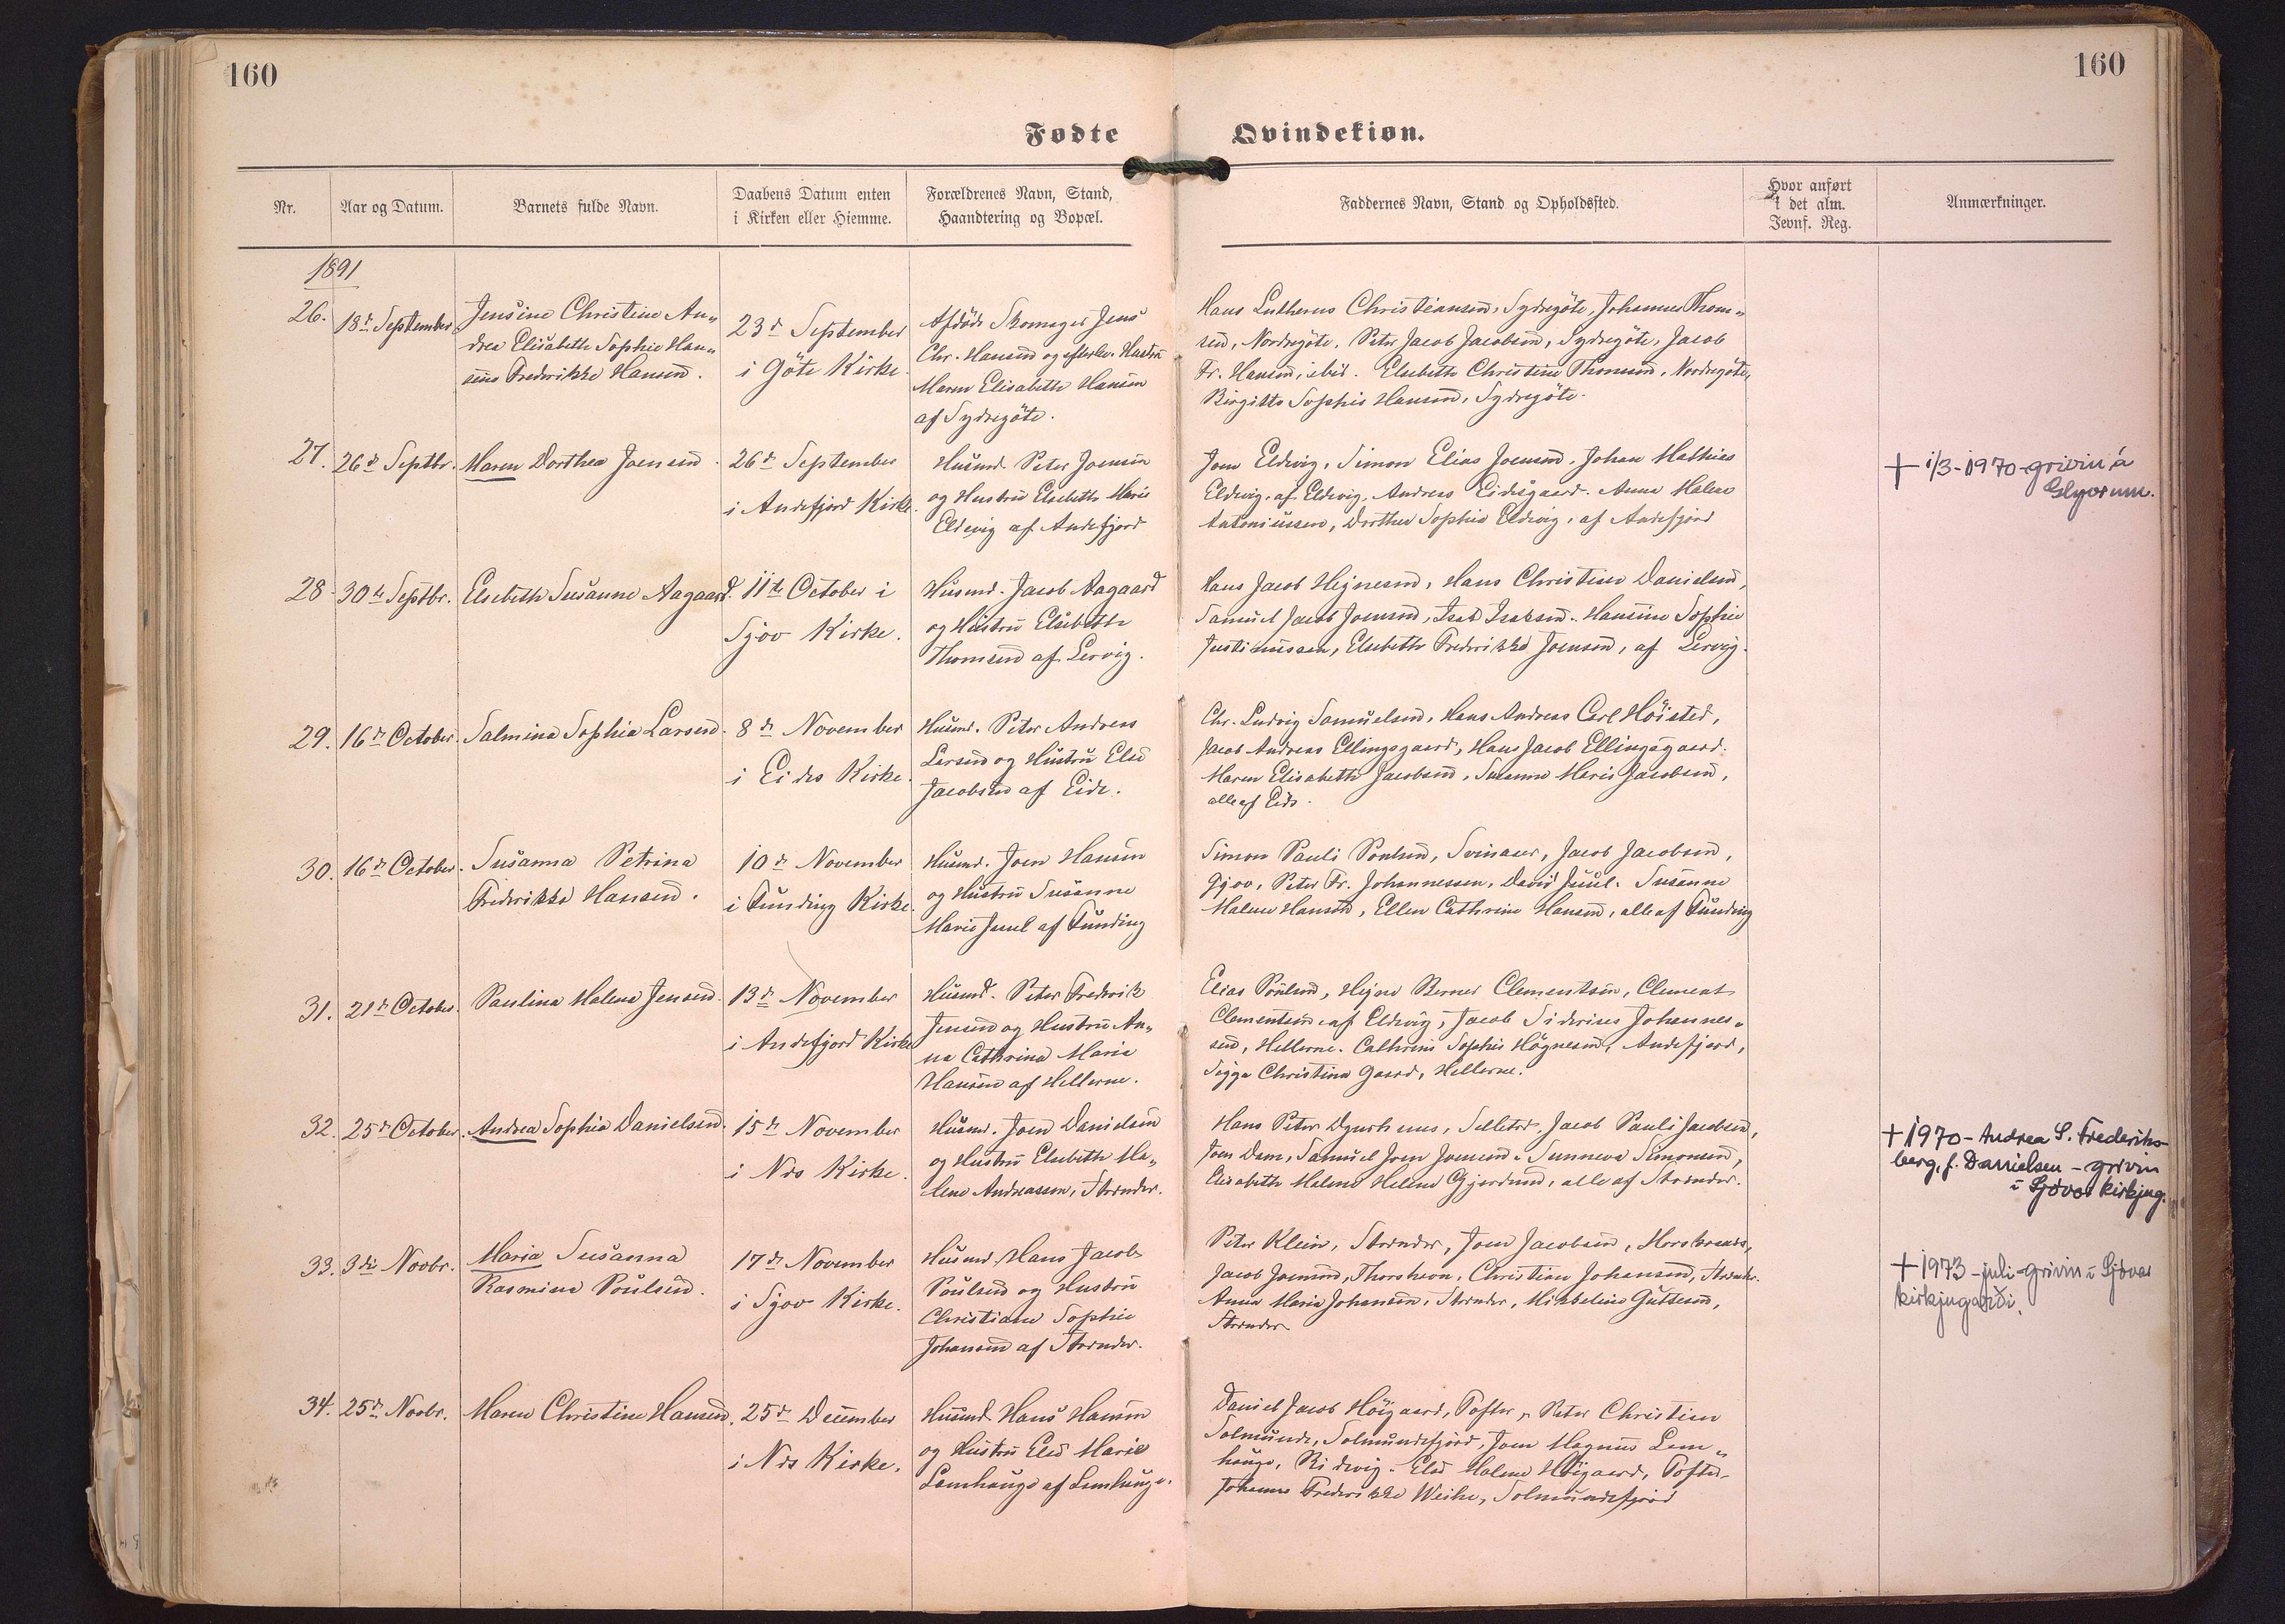 160
160
Fødte
Qvindekiøn.
Nr.
Aar og Datum.
Barnets fulde Navn.
Daabens Datum enten
i Kirken eller Hiemme.
Forældrenes Navn, Stand,
Haandtering og Bopæl.
Faddernes Navn, Stand og Opholdssted.
Hvor anført
i det alm.
Jevnf. Reg.
Anmærkninger.
1891
26.
18de September
Jensine Christine An„
drea Elisabeth Sophie Han„
sine Frederikke Hansen.
23de September
i Göte Kirke.
Afdöde Skomager Jens
Chr. Hansen og efterlev. Hustru
Maren Elisabeth Hansen
af Sydregöte.
Hans Lutherus Christiansen, Sydregöte, Johannes Thom„
sen, Nordregöte, Peter Jacob Jacobsen, Sydregöte, Jacob
Fr. Hansen, ibid. Elsebeth Christine Thomsen, Nordregöte,
Birgitte Sophie Hansen, Sydregöte.
27.
26de Septbr.
Maren Dorthea Joensen.
26de September
i Andefjord Kirke.
Husmd. Peter Joensen
og Hustru Elsebeth Marie
Eldevig af Andefjord
Joen Eldevig, Simon Elias Joensen, Johan Mathias
Eldevig, af Eldevig, Andreas Eidisgaard. Anna Malene
Antoniussen, Dorthea Sophie Eldevig, af Andefjord
+ 1/3-1970-grivin á
Glyvrum.
28.
30te Septbr.
Elsebeth Susanne Aagaard.
11te October i
Sjov Kirke.
Husmd. Jacob Aagaard
og Hustru Elsebeth
Thomsen af Lervig.
Hans Jacob Hejnesen, Hans Christian Danielsen,
Samuel Jacob Joensen, Isak Isaksen. Hansine Sophie
Justinussen, Elsebeth Frederikke Joensen, af Lervig.
29.
16de October.
Salmine Sophie Larsen.
8de November
i Eides Kirke.
Husmd. Peter Andreas
Larsen og Hustru Else
Jacobsen af Eide.
Chr. Ludvig Samuelsen, Hans Andreas Carl Höisted,
Jacob Andreas Ellingsgaard, Hans Jacob Ellingsgaard.
Maren Elisabeth Jacobsen, Susanne Marie Jacobsen,
alle af Eide.
30.
16de October.
Susanna Petrina
Frederikke Hansen.
10de November
i Funding Kirke.
Husmd. Joen Hansen
og Hustru Susanne
Marie Juul af Funding
Simon Pauli Poulsen, Svinaaer, Jacob Jacobsen,
Gjov, Peter Fr. Johannessen, David Juul. Susanne
Malene Hansen, Ellen Cathrine Hansen, alle af Funding
31.
21de October.
Pauline Malene Jensen.
13de November
i Andefjord Kirke
Husmd. Peter Frederik
Jensen og Hustru An„
na Cathrine Maria
Hansen af Hellerne.
Elias Poulsen, Hejne Berner Clementsen, Clement
Clementsen af Eldevig, Jacob Johannes„
sen, Hellerne. Cathrine Sophie Högnesen, Andefjord,
Sigga Christina Gaard, Hellerne.
32.
25de October.
Andrea Sophie Danielsen.
15de November
i Nes Kirke.
Husmd. Joen Danielsen
og Hustru Elsebeth Ma„
lene Andreassen, Strænder.
Hans Peter Djurhuus, Selletræ, Jacob Pauli Jacobsen,
Joen Dam, Samuel Joen Joensen. Sunneva Simonsen,
Elisabeth Malene Helene Gjerdum, alle af Strænder.
+ 1970 - Andrea S. Frederiks-
berg, f. Danielsen - grivin
í Sjóvar kirkjug.
33.
3die Novbr.
Maria Susanna
Rasmine Poulsen.
17de November
i Sjov Kirke.
Husmd. Hans Jacob
Poulsen og Hustru
Christiane Sophie
Johansen af Strænder.
Peter Klein, Strænder, Joen Jacobsen, Morskranes,
Jacob Joensen, Thorshavn, Christian Johansen, Strænder.
Anna Maria Johansen, Strænder, Mikkeline Guttesen,
Strænder
+ 1973 - juli - grivin í Sjóvar
kirkjugarði.
34.
25de Novbr.
Maren Christine Hansen.
25de December
i Nes Kirke.
Husmd. Hans Hansen
og Hustru Else Marie
Lamhauge af Lamhauge.
Daniel Jacob Höjgaard, Tofter, Peter Christian
Solmunde, Solmundefjord, Joen Magnus Lam„
hauge, Ridevig. Else Malene Höjgaard, Tofter.
Johanne Frederikke Weihe, Solmundefjord